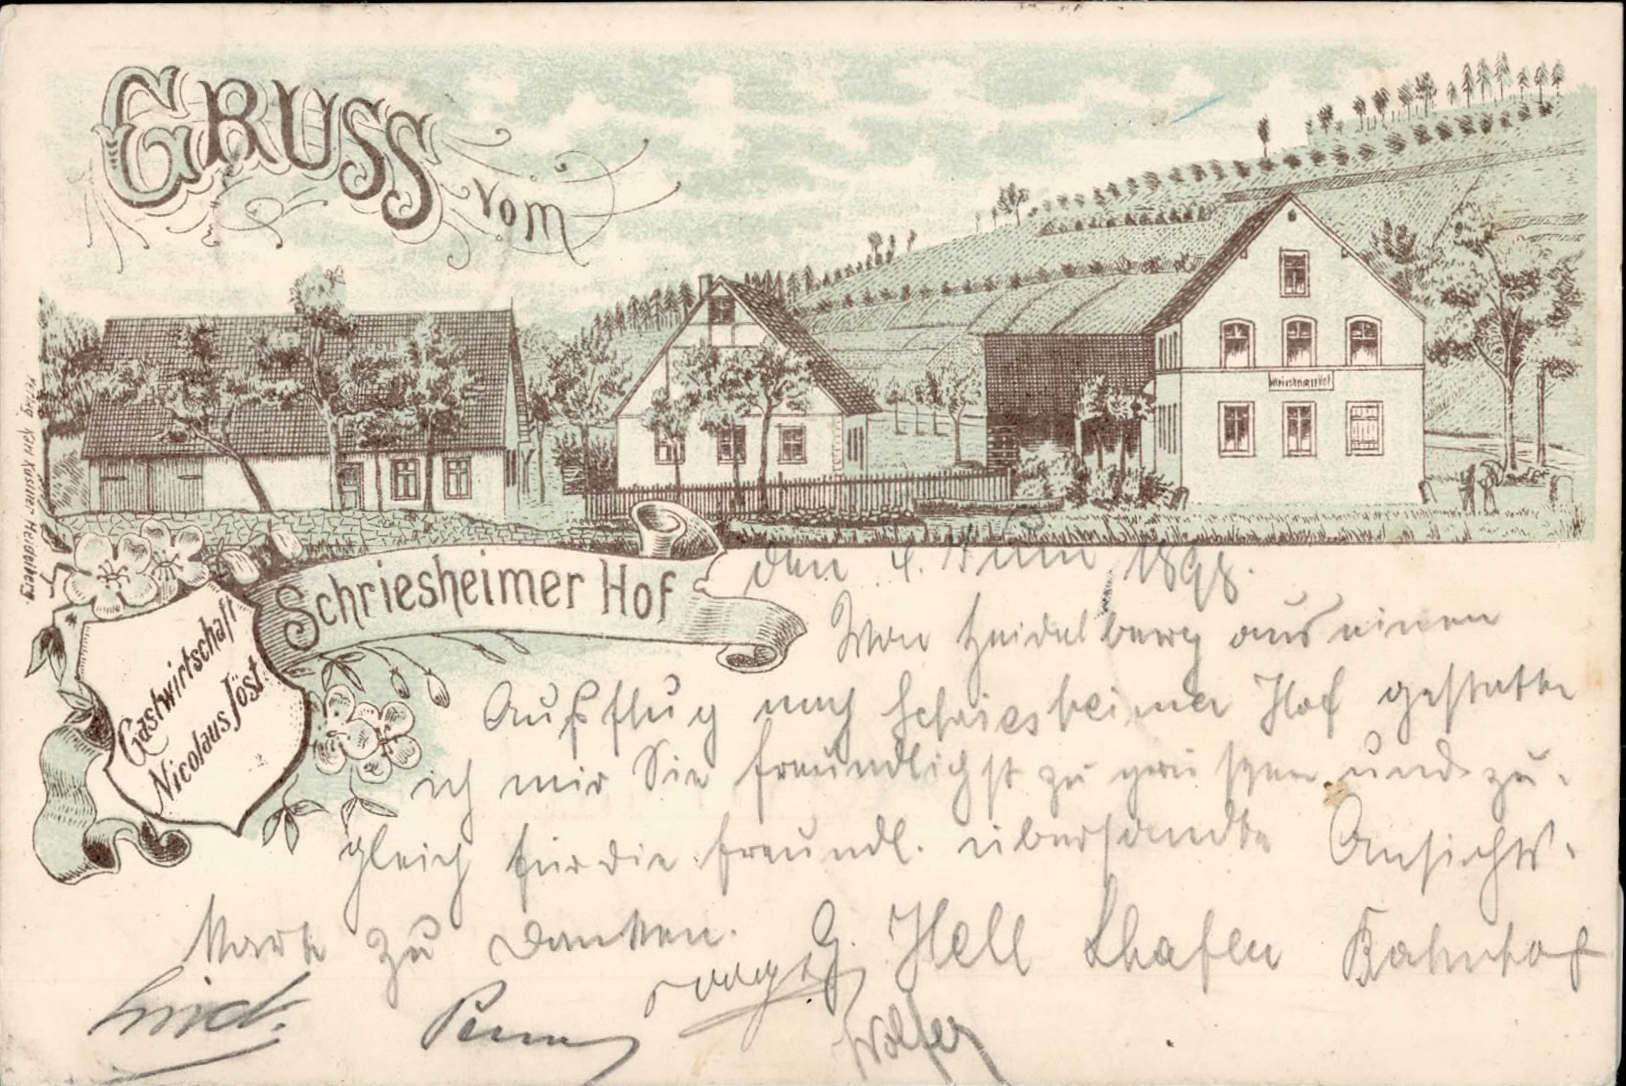 GRUSS
vom
Schriesheimer Hof
Gastwirtschaft
Nicolaus Jöst.
Verlag Karl Kästner Heidelberg.
den 4. Juni 1898.
Von Heidelberg aus einen
Ausflug nach Schriesheimer Hof gestatte
ich mir Sie freundlichst zu grüssen und zu-
gleich für die freundl. übersandte Ansichts-
karte zu danken.
G. Hell Lhafen Bahnhof
Wolfer